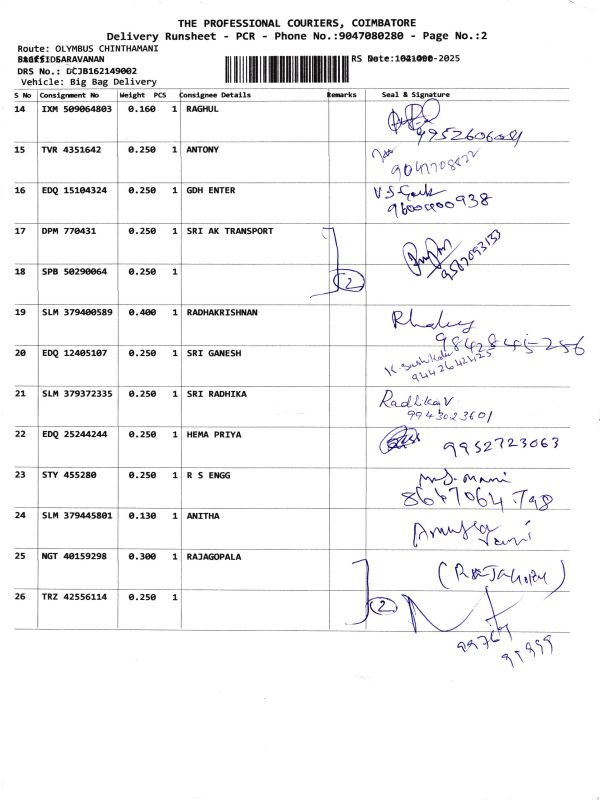 THE PROFESSIONAL COURIERS, COIMBATORE
Delivery Runsheet - PCR - Phone No.:9047080280 - Page No.:2
Route: OLYMBUS CHINTHAMANI
SARAVANAN
RS No 2025
DRS No.: DCJB162149002
Vehicle: Big Bag Delivery
S No Consignment No Weight PCS Consignee Details Remarks Seal & Signature
14 IXM 509064803 0.160 1 RAGHUL
15 TVR 4351642 0.250 1 ANTONY
16 EDQ 15104324 0.250 1 GDH ENTER
17 DPM 770431 0.250 1 SRI AK TRANSPORT
9587093133
18 SPB 50290064 0.250 1 2
19 SLM 379400589 0.400 1 RADHAKRISHNAN
9842845256
20 EDQ 12405107 0.250 1 SRI GANESH
9442642425
21 SLM 379372335 0.250 1 SRI RADHIKA Radhika V
9943023601
22 EDQ 25244244 0.250 1 HEMA PRIYA 9952723063
23 STY 455280 0.250 1 R S ENGG
8667064798
24 SLM 379445801 0.130 1 ANITHA
25 NGT 40159298 0.300 1 RAJAGOPALA
26 TRZ 42556114 0.250 1 2
99767
91999